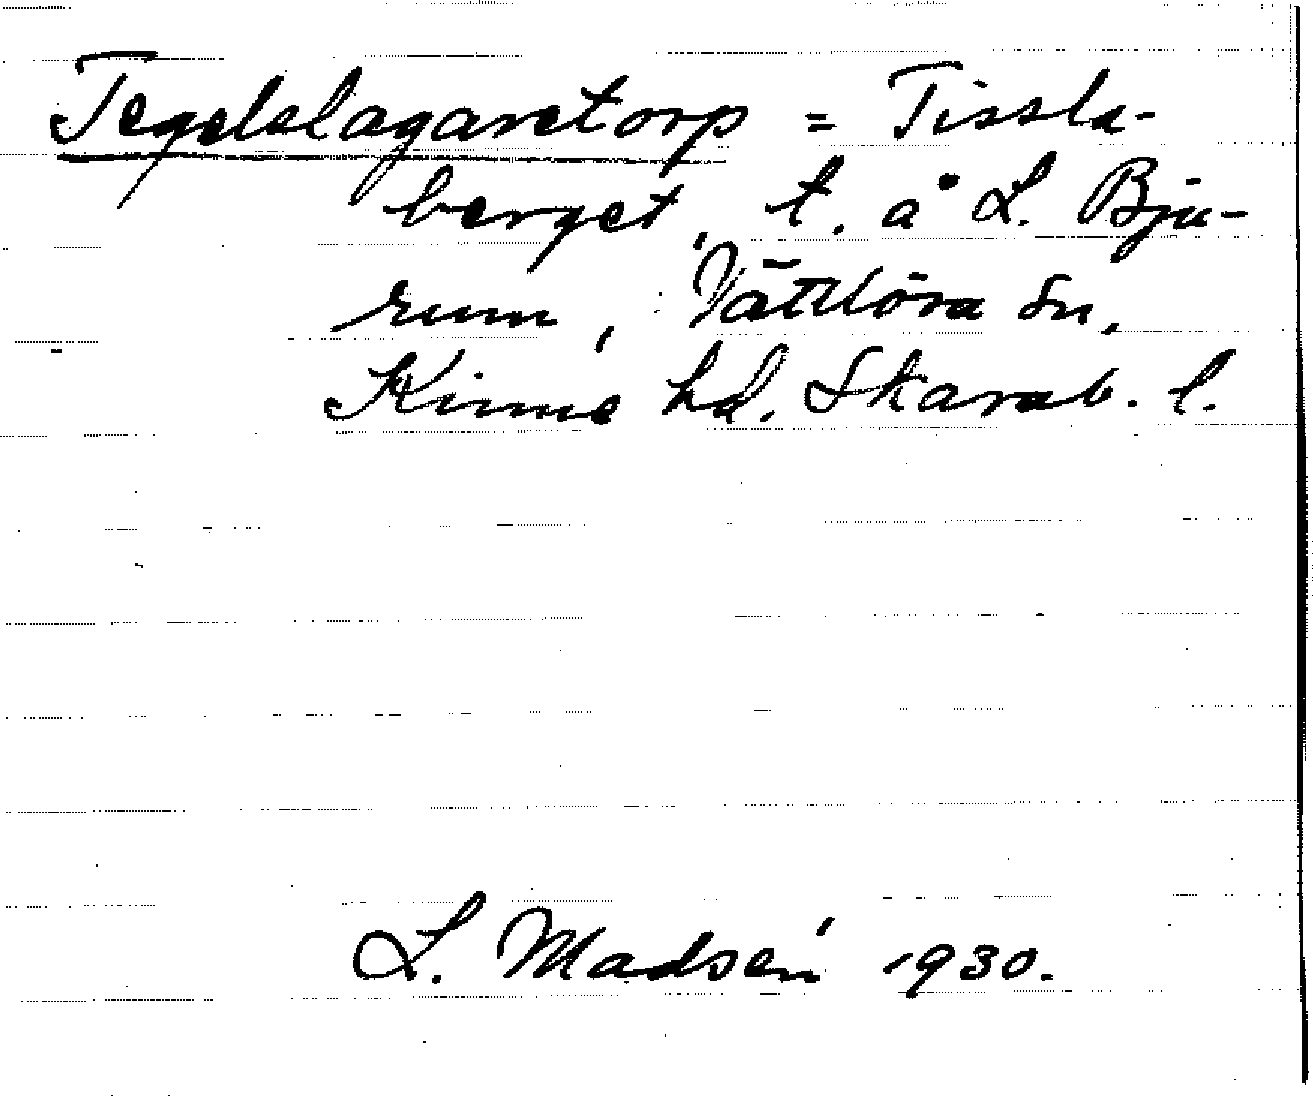 Tegelslagaretorp = Tissla-
berget, t. å L. Bju-
rum, Vättlösa sn,
Kinne hd. Skarab. l.
L. Madsén 1930.